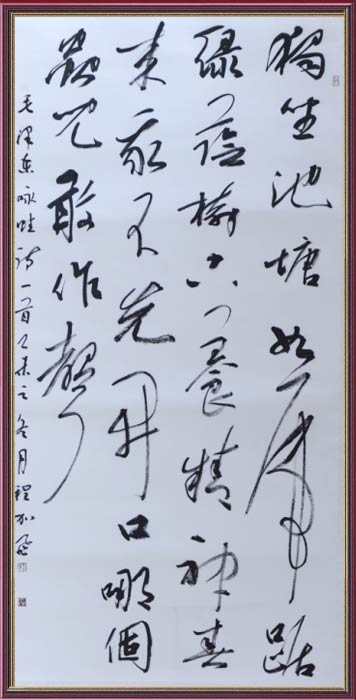 獨坐池塘如虎踞
綠蔭樹下養精神春
來我不先開口哪個
蟲兒敢作聲
毛澤東咏蛙詩一首乙未之冬月程加